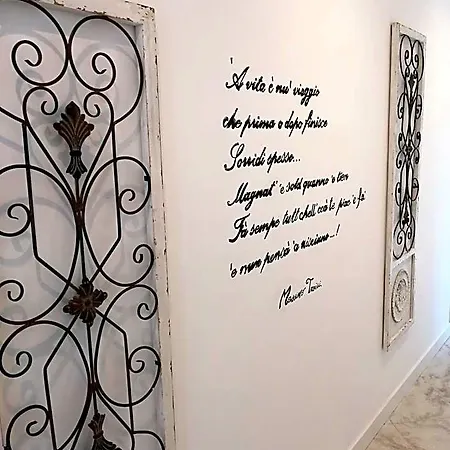 'A vita è nu' viaggio
che prima o dopo finisce
Sorridi spesso...
Magnat' 'e sold quanno 'e tien
Fà sempe tutt chell' ca te piac 'e fà
'e nun penzà 'a nisciuno...!